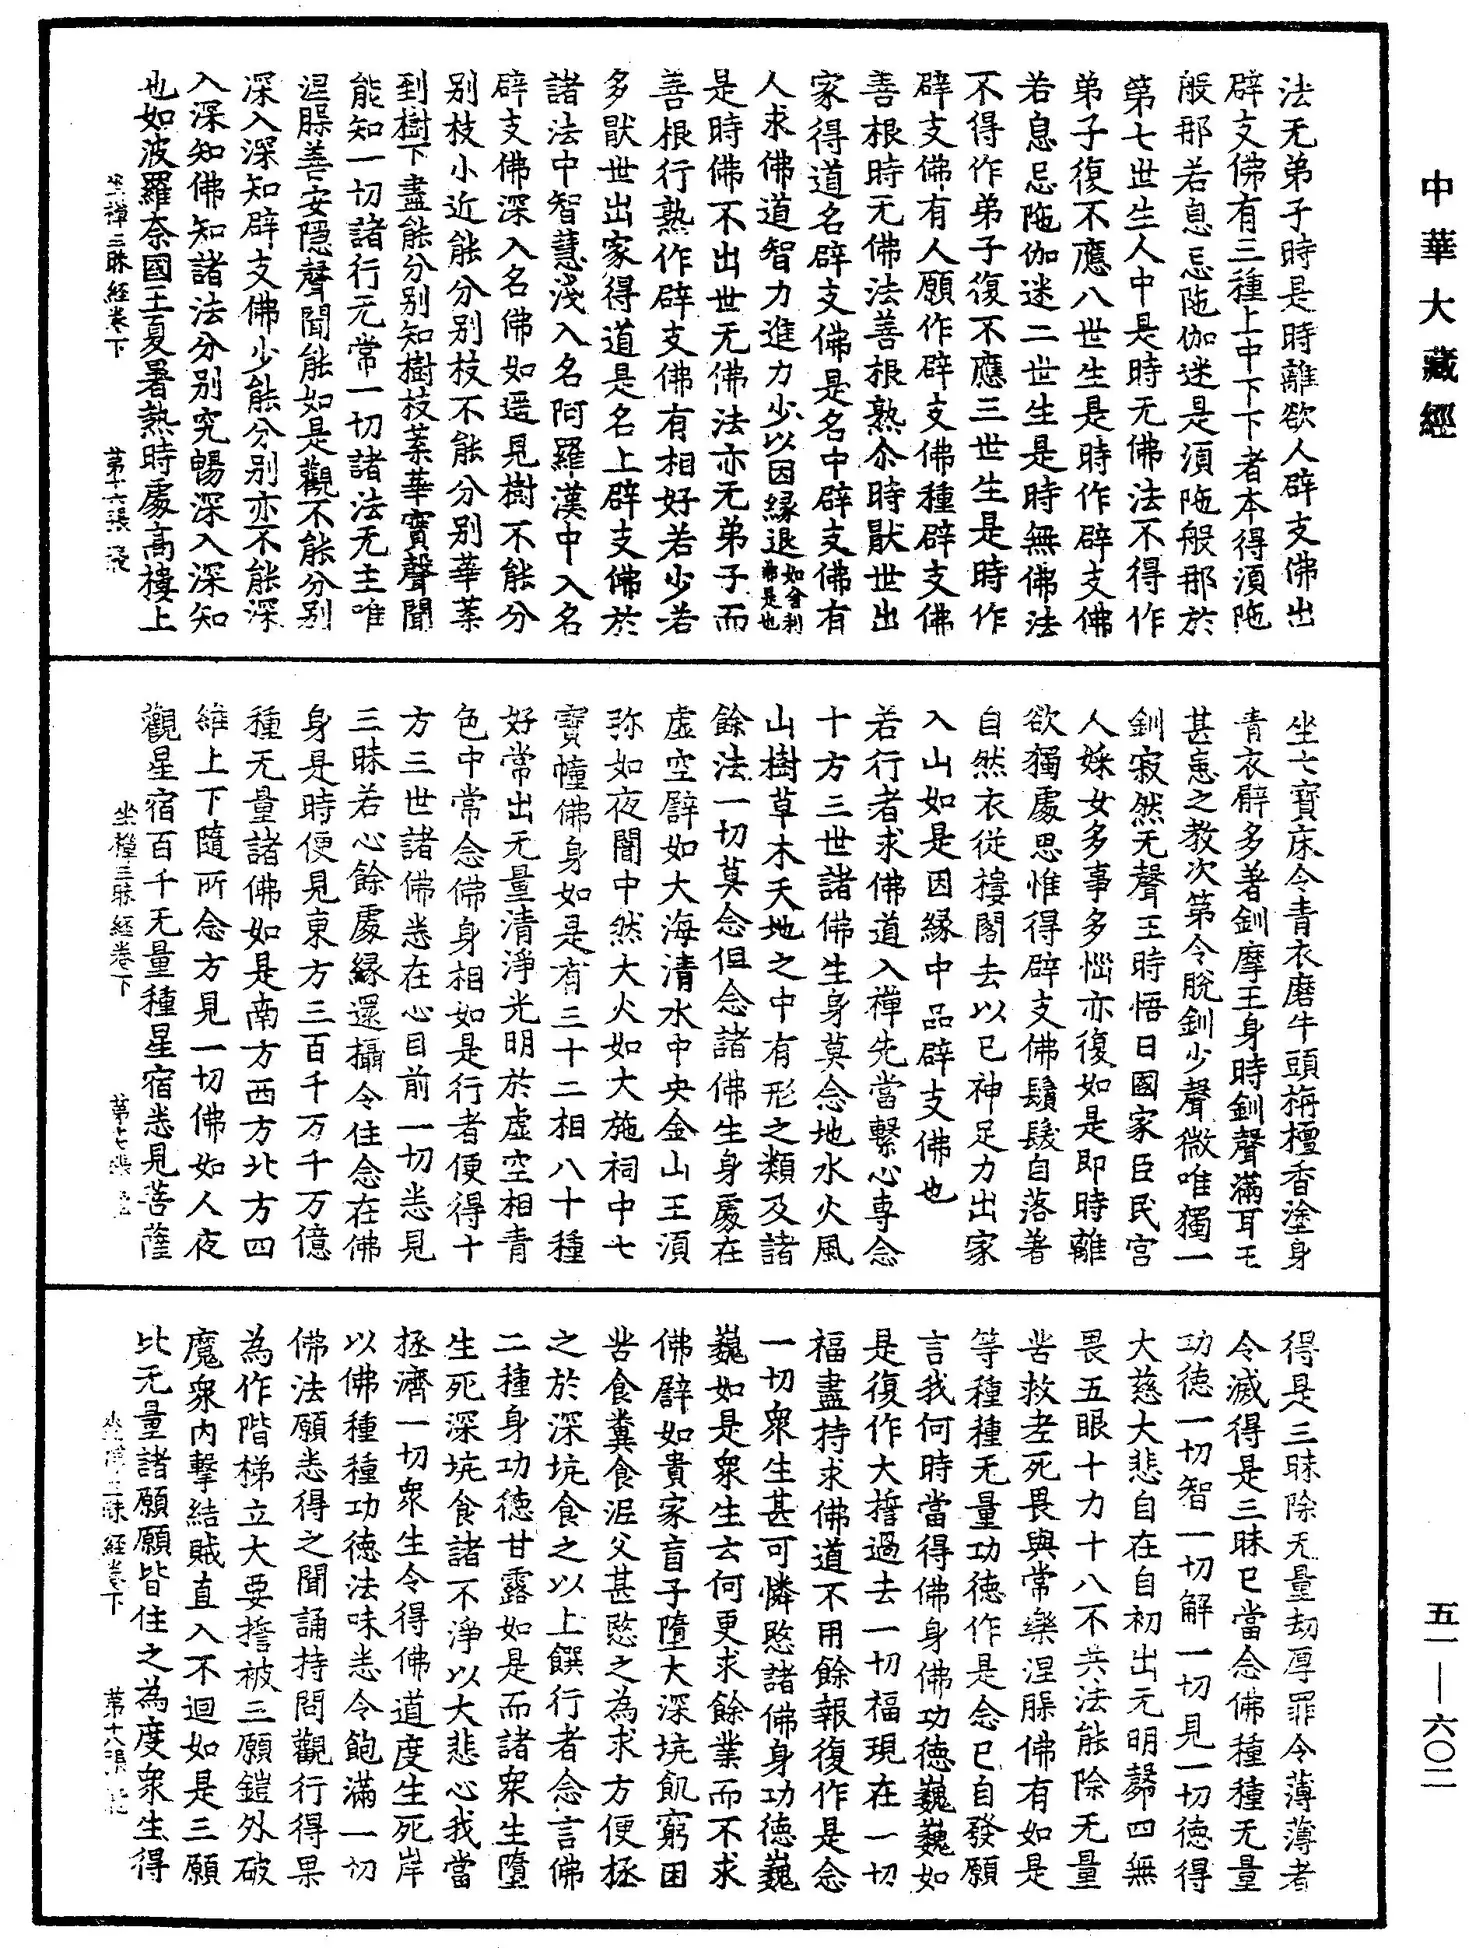 中華大藏經
法无弟子時是時離欲人辟支佛出
辟支佛有三種上中下下者本得湏陁
般那若息忌陁伽迷是湏陁般那於
第七世生人中是時无佛法不得作
弟子復不應八世生是時作辟支佛
若息忌陁伽迷二世生是時無佛法
不得作弟子復不應三世生是時作
辟支佛有人願作辟支佛種辟支佛
善根時无佛法善根熟尒時猒世出
家得道名辟支佛是名中辟支佛有
人求佛道智力進力少以因緣退如舍利弗是也
是時佛不出世无佛法亦无弟子而
善根行熟作辟支佛有相好若少若
多猒世出家得道是名上辟支佛於
諸法中智慧淺入名阿羅漢中入名
辟支佛深入名佛如遥見樹不能分
別枝小近能分別枝不能分別華葉
到樹下盡能分別知樹枝葉華實聲聞
能知一切諸行无常一切諸法无主唯
涅槃善安隱聲聞能如是觀不能分別
深入深知辟支佛少能分別亦不能深
入深知佛知諸法分別究暢深入深知
也如波羅奈國王夏暑熱時處高樓上
坐禪三昧經卷下　第十六張
坐七寶床令青衣磨牛頭栴檀香塗身
青衣臂多著釧摩王身時釧聲滿耳王
甚患之教次第令脫釧少聲微唯獨一
釧寂然无聲王時悟曰國家臣民宮
人婇女多事多惱亦復如是即時離
欲獨處思惟得辟支佛鬚髮自落著
自然衣從樓閣去以已神足力出家
入山如是因緣中品辟支佛也
若行者求佛道入禪先當繫心專念
十方三世諸佛生身莫念地水火風
山樹草木天地之中有形之類及諸
餘法一切莫念但念諸佛生身處在
虛空辟如大海清水中央金山王湏
弥如夜闇中然大火如大施祠中七
寶幢佛身如是有三十二相八十種
好常出无量清淨光明於虛空相青
色中常念佛身相如是行者便得十
方三世諸佛悉在心目前一切悉見
三昧若心餘處緣還攝令住念在佛
身是時便見東方三百千万千万億
種无量諸佛如是南方西方北方四
維上下隨所念方見一切佛如人夜
觀星宿百千无量種星宿悉見菩薩
坐禪三昧經卷下　第十七張
得是三昧除无量劫厚罪令薄薄者
令滅得是三昧已當念佛種種无量
功德一切智一切解一切見一切德得
大慈大悲自在自初出无明㲉四無
畏五眼十力十八不共法能除无量
苦救老死畏與常樂涅槃佛有如是
等種種无量功德作是念已自發願
言我何時當得佛身佛功德巍巍如
是復作大誓過去一切福現在一切
福盡持求佛道不用餘報復作是念
一切衆生甚可憐愍諸佛身功德巍
巍如是衆生云何更求餘業而不求
佛辟如貴家盲子墮大深坑飢窮困
苦食糞食泥父甚愍之為求方便拯
之於深坑食之以上饌行者念言佛
二種身功德甘露如是而諸衆生墮
生死深坑食諸不淨以大悲心我當
拯濟一切衆生令得佛道度生死岸
以佛種種功德法味悉令飽滿一切
佛法願悉得之聞誦持問觀行得果
為作階梯立大要誓被三願鎧外破
魔衆內擊結賊直入不迴如是三願
比无量諸願願皆住之為度衆生得
坐禪三昧經卷下　第十八張
五一—六〇二